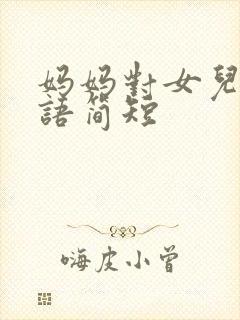 妈妈對女兒
語简短
嗨皮小曾